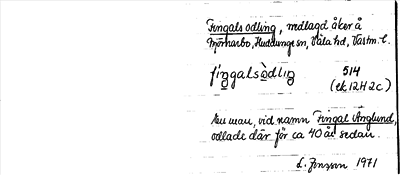 Fingals odling, nedlagd åker å
Mjörnarbo, Huddunge sn, Våla hd, Västm. l.
fiŋgalsòdliŋ 514
(ek. 12H 2c)
En man, vid namn Fingal Englund,
odlade där för ca 40 år sedan.
L. Jonsson 1971